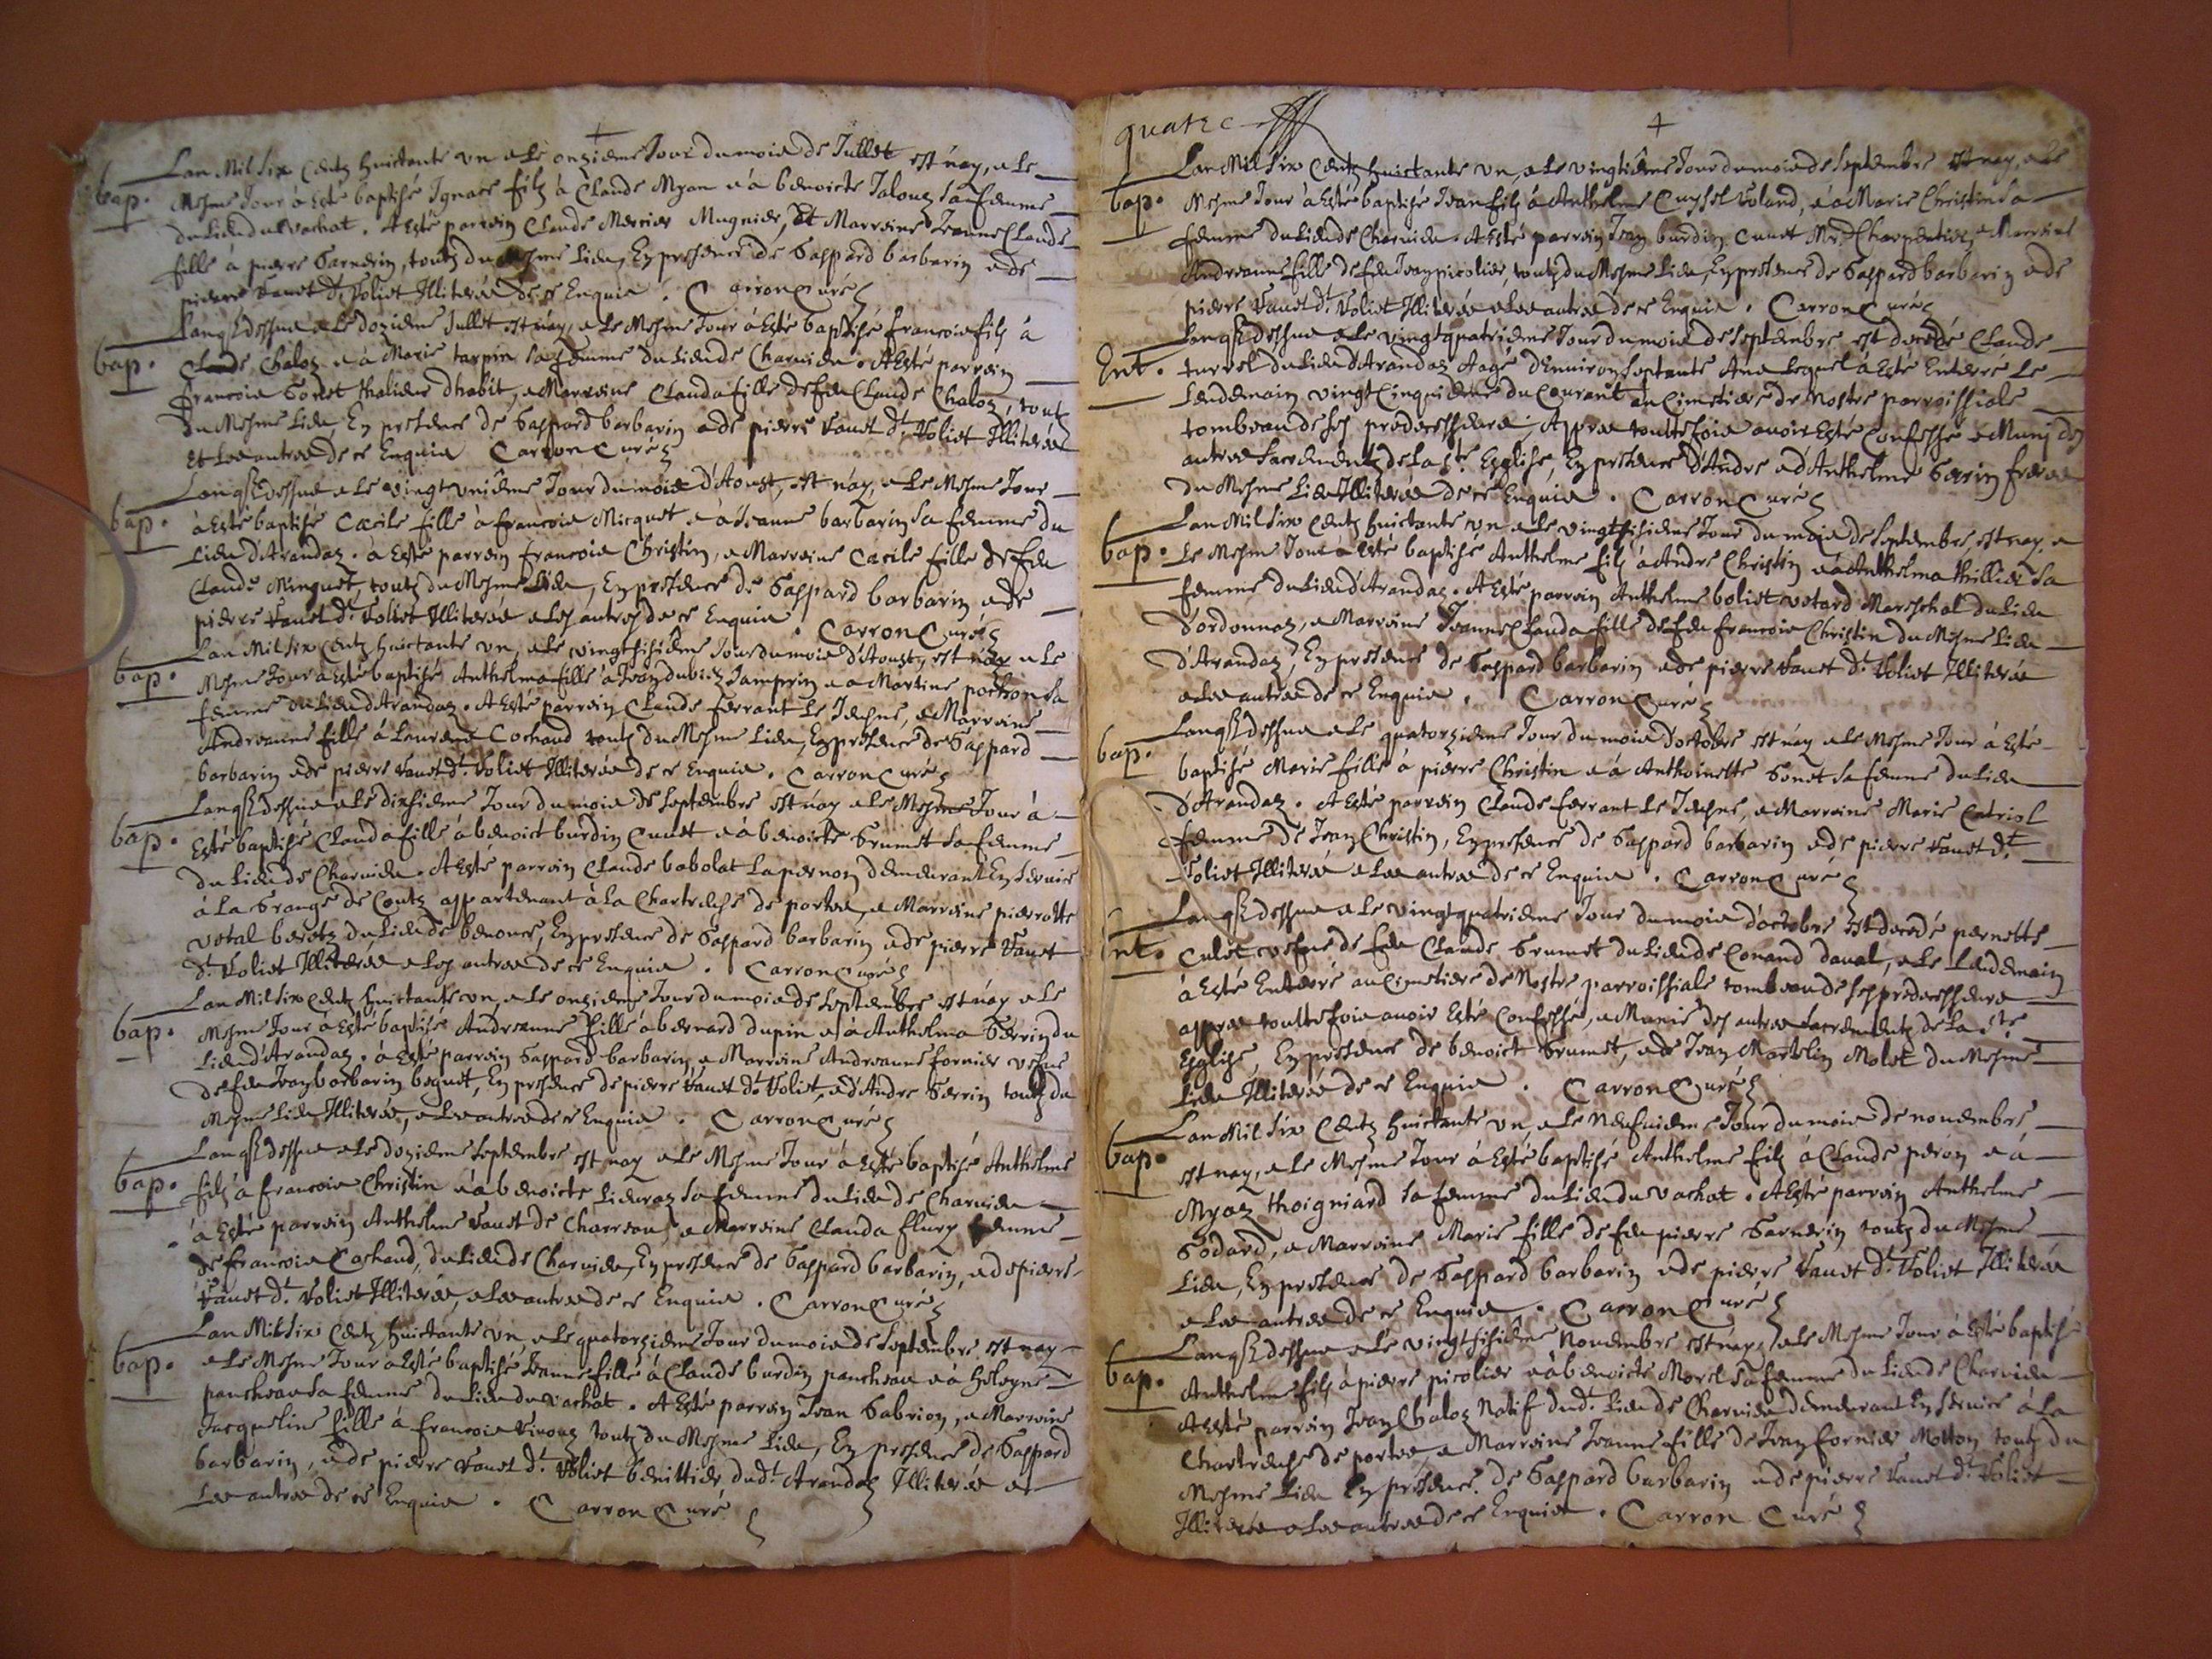 bap. Lan Mil Six Centz huictante un & Le onzieme Jour du mois de Jullet est náy, & Le
Mesme Jour à Esté baptisé Ignace filz à Claude Myan & à benoicte Jalouz Sa femme
du Lieu du vachat. A Esté parrein Claude Mercier Mugnier, Et Marreine Jeanne Claude
fille à pierre Garnerin, toutz du Mesme Lieu, En presence de Gaspard barbarin & de
pierre vauet dt. Voliet Illiterés de ce Enquis. Carron Curé
bap. Lanq Sy dessus & Le dozieme Jullet est náy, & Le Mesme Jour à Esté baptisé francois filz à
Claude Chaloz & à Marie tarpin Sa femme du Lieu de Charuieu. A Esté parrein
francois Gonet thalieur dhabit, & Marreine Clauda fille de feu Claude Chaloz, toutz
du Mesme Lieu En presence de Gaspard barbarin & de pierre vauet dt. Voliet Illiterés
Et Les autres de ce Enquis Carron Curé
bap. Lanq Sy dessus & Le vingt unieme Jour du mois d'Aoust, est náy, & Le Mesme Jour
à Esté baptisé Cæcile fille à francois Micquet & à Jeanne barbarin Sa femme du
Lieu d'Arandaz. à Esté parrein francois Christin, & Marreine Cæcile fille de feu
Claude Minguet, toutz du Mesme Lieu, En presence de Gaspard barbarin & de
pierre vauet dt. Voliet Illiterés & Les autres de ce Enquis. Carron Curé
bap. Lan Mil Six Centz huictante un, & Le vingtsisieme Jour du mois d'Aoust, est náy & Le
Mesme Jour à Esté baptisé Anthelma fille à Jean dubiez Jamprin & à Martine pochon Sa
femme du Lieu d'Arandaz. A Esté parrein Claude ferrant Le Jeusne, & Marreine
Andreanne fille à Laurent Cochaud toutz du Mesme Lieu, En presence de Gaspard
barbarin & de pierre vauet dt. Voliet Illiterés de ce Enquis. Carron Curé
bap. Lanq Sy dessus & Le dixsieme Jour du mois de Septembre est náy & Le Mesme Jour à
Esté baptisé Clauda fille à benoict burdin Cuuet & à benoicte Grumet Sa femme
du Lieu de Charuieu. A Esté parrein Claude babolat Lapernon demeurant En Seruice
à La Grange de Contz appartenant à La Chartreuse de portes, & Marreine pierrotte
votal beretz du Lieu de benonce, En presence de Gaspard barbarin & de pierre vauet
dt. Voliet Illiterés & Les autres de ce Enquis. Carron Curé
bap. Lan Mil Six Centz huictante un, & Le onzieme Jour du mois de Septembre est náy & Le
Mesme Jour à Esté baptisé Andreanne fille à bernard dupin & à Anthelma Gerrin du
Lieu d'Arandaz. à Esté parrein Gaspard barbarin, & Marreine Andreanne fornier vefue
de feu Jean barbarin beguet, En presence de pierre vauet dt. Voliet, & d'Andre Gerrin toutz du
Mesme Lieu Illiterés, & Les autres de ce Enquis. Carron Curé
bap. Lanq Sy dessus & Le dozieme Septembre est nay & Le Mesme Jour à Esté baptisé Anthelme
filz à francois Christin & à benoicte Lieuraz Sa femme du Lieu de Charuieu
à Esté parrein Anthelme vauet de Charreau, & Marreine Clauda flury femme
de francois Cochaud, du Lieu de Charuieu, En presence de Gaspard barbarin, & de pierre
vauet dt. Voliet Illiterés, & Les autres de ce Enquis. Carron Curé
bap. Lan Mil Six Centz huictante un & Le quatorzieme Jour du mois de Septembre est nay
& Le Mesme Jour à Esté baptisé Jeanne fille à Claude burdin pancheau & à Heleyne
pancheau Sa femme du Lieu du vachat. A Esté parrein Jean Gabrion, & Marreine
Jacqueline fille à francois Vinouz toutz du Mesme Lieu, En presence de Gaspard
barbarin, & de pierre vauet dt. Voliet benittier dudt. Arandaz Illiterés &
Les autres de ce Enquis. Carron Curé
quatre
bap. Lan Mil Six Centz huictante un, & Le vingtieme Jour du mois de Septembre est nay, & Le
Mesme Jour à Esté baptisé Jean filz à Anthelme Cuyssel Voland, & à Marie Christin Sa
femme du Lieu de Charuieu. A Esté parrein Jean burdin Cuuet Mre. Charpentier, & Marreine
Andreanne fille de feu Jean picolier, toutz du Mesme Lieu, En presence de Gaspard barbarin & de
pierre vauet dt. Voliet Illiterés & Les autres de ce Enquis. Carron Curé
Ent. Lanq Sy dessus & Le vingtquatrieme Jour du mois de Septembre est decedé Claude
turrel du Lieu d'Arandaz Aagé d'Enuiron Septante Ans Lequel à Esté Enterré Le
Lendemain vingt Cinquieme du Courant au Cimetiere de Nostre parroissiale
tombeau de Ses predecesseurs; Appres touttefois auoir Esté Confessé & Muny des
autres Sacrementz de La Ste. Esglise, En presence d'Andre & d'Anthelme Gerrin freres
du Mesme Lieu Illiterés de ce Enquis. Carron Curé
bap. Lan Mil Six Centz huictante un & Le vingtsisieme Jour du mois de Septembre, est nay, &
Le Mesme Jour à Esté baptisé Anthelme filz à Andre Christin & à Anthelma thillier Sa
femme du Lieu d'Arandaz. A Esté parrein Anthelme boliet votard Mareschal du Lieu
d'ordonnaz, & Marreine Jeanne Clauda fille de feu francois Christin du Mesme Lieu
d'Arandaz, En presence de Gaspard barbarin & de pierre vauet dt. Voliet Illiterés
& Les autres de ce Enquis. Carron Curé
bap. Lanq Sy dessus & Le quatorzieme Jour du mois d'octobre est náy & Le Mesme Jour à Esté
baptisé Marie fille à pierre Christin & à Anthoinette Gonet Sa femme du Lieu
d'Arandaz. A Esté parrein Claude ferrant Le Jeusne, & Marreine Marie Catriol
femme de Jean Christin, En presence de Gaspard barbarin & de pierre vauet dt.
Voliet Illiterés & Les autres de ce Enquis. Carron Curé
Ent. Lanq Sy dessus & Le vingtquatrieme Jour du mois d'octobre Est decedé pernette
Culet vefue de feu Claude Grumet du Lieu de Conand daual, & Le Lendemain
à Esté Enterré au Cimetiere de Nostre parroissiale tombeau de Ses predecesseurs
appres touttefois auoir Esté Confessé, & Munie des autres Sacrementz de La Ste.
Esglise, En presence de benoict Grumet, & de Jean Martelin Molet du Mesme
Lieu Illiterés de ce Enquis. Carron Curé
bap. Lan Mil Six Centz huictante un & Le Neufuieme Jour du mois de nouembre
est nay, & Le Mesme Jour à Esté baptisé Anthelme filz à Claude peron & à
Myaz thoigniard Sa femme du Lieu du vachat. A Esté parrein Anthelme
Godard, & Marreine Marie fille de feu pierre Garnerin toutz du Mesme
Lieu, En presence de Gaspard barbarin & de pierre vauet dt. Voliet Illiterés
& Les autres de ce Enquis. Carron Curé
bap. Lanq Sy dessus & Le vingtsisieme Nouembre est náy, & Le Mesme Jour à Esté baptisé
Anthelme filz à pierre picolier & à benoicte Morel Sa femme du Lieu de Charuieu
A Esté parrein Jean Chaloz Natif dudt. Lieu de Charuieu demeurant En Seruice à La
Chartreuse de portes, & Marreine Jeanne fille de Jean fornier Motton toutz du
Mesme Lieu En presence de Gaspard barbarin & de pierre vauet dt. Voliet
Illiterés & Les autres de ce Enquis. Carron Curé